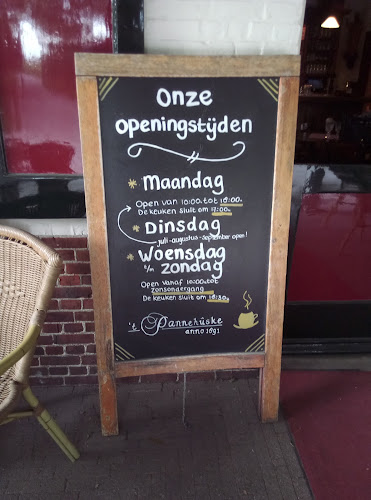 Onze
openingstijden
* Maandag
Open van 10:00 tot 18:00.
De keuken sluit om 17:00.
* Dinsdag
juli-augustus-september open!
* Woensdag
t/m zondag
Open vanaf 10:00 tot
zonsondergang
De keuken sluit om 18:30.
't Pannehüske
anno 1891